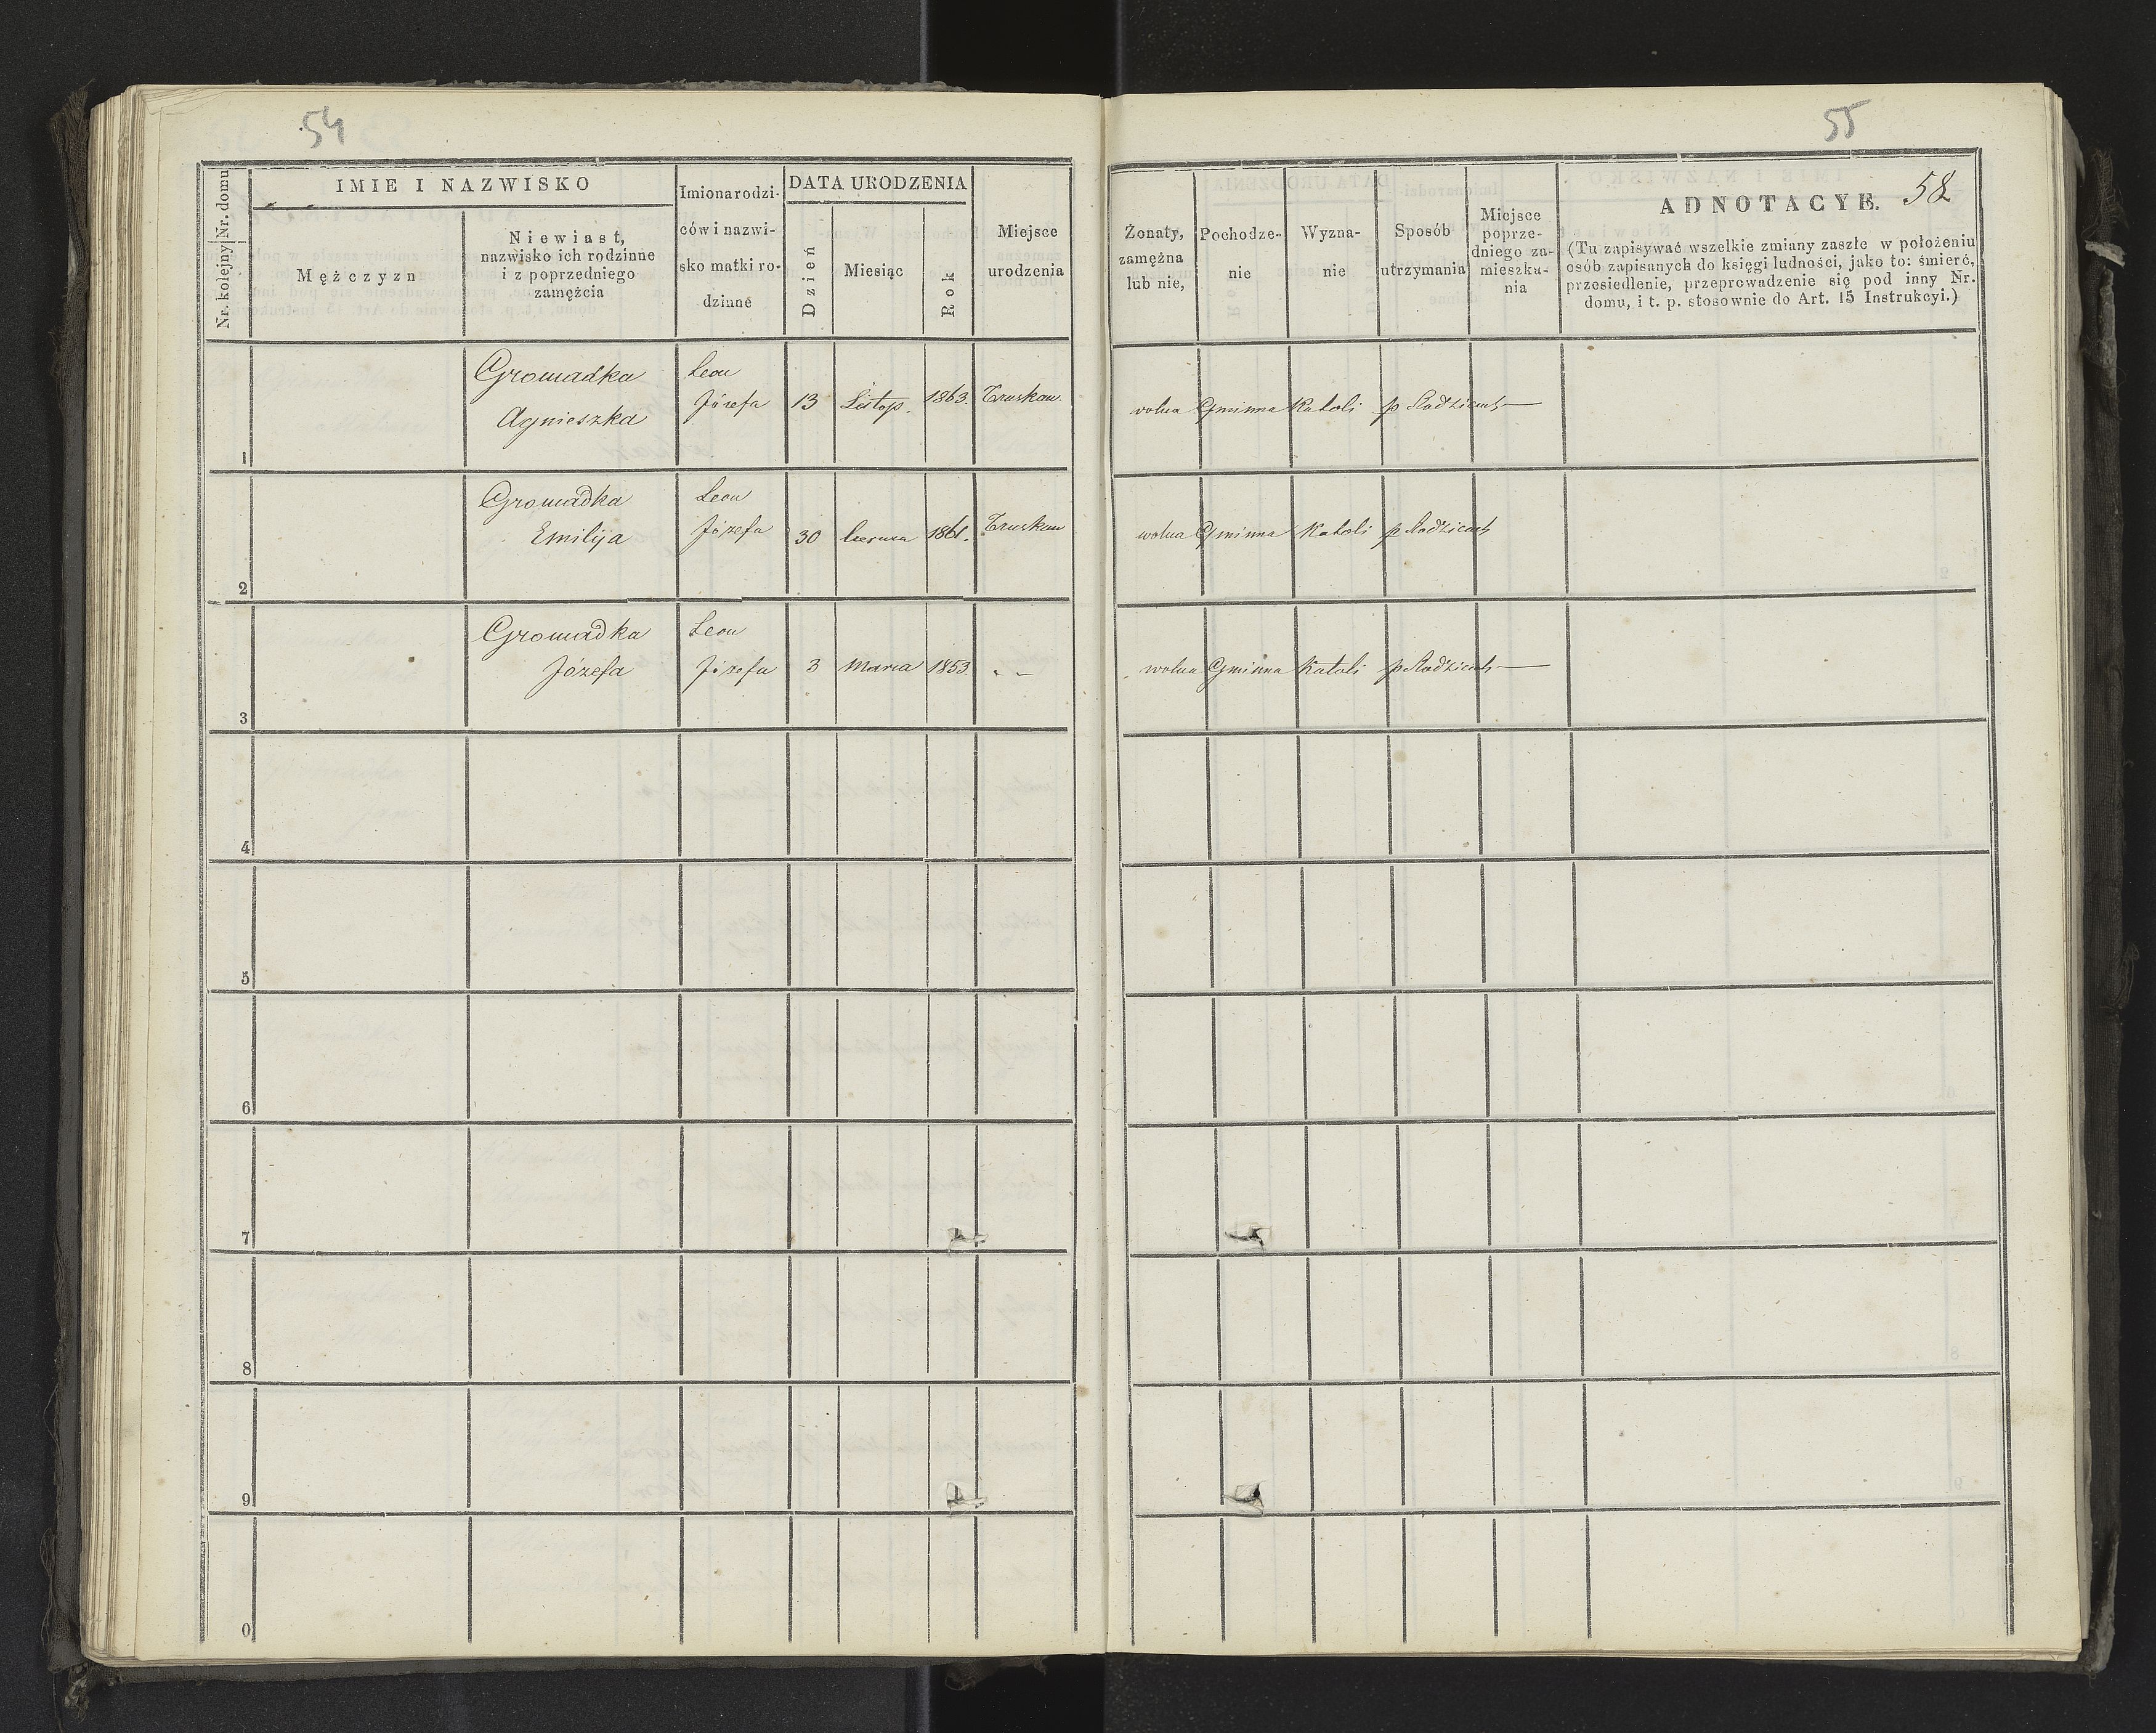 54
55
58
Nr. kolejny Nr. domu
IMIE I NAZWISKO
Mężczyzn
Niewiast,
nazwisko ich rodzinne
i z poprzedniego
zamężcia
Imiona rodzi-
ców i nazwi-
sko matki ro-
dzinne
DATA URODZENIA
Dzień
Miesiąc
Rok
Miejsce
urodzenia
Żonaty,
zamężna
lub nie,
Pochodze-
nie
Wyzna-
nie
Sposób
utrzymania
Miejsce
poprze-
dniego za-
mieszka-
nia
ADNOTACYE.
(Tu zapisywać wszelkie zmiany zaszłe w położeniu
osób zapisanych do księgi ludności, jako to: śmierć,
przesiedlenie, przeprowadzenie się pod inny Nr.
domu, i t. p. stosownie do Art. 15 Instrukcyi.)
Gromadka Leon
Agnieszka Józefa 13 Listop. 1863. Truskaw. wolna Gminna Katoli p Rodzicach
1
Gromadka Leon
Emilija Józefa 30 1861. Truskaw wolna Gminna Katoli p Rodzicach
2
Gromadka Leon
Józefa Józefa 3 Marca 1853. „ „ wolna Gminna Katoli p Rodzicach
3
4
5
6
7
8
9
0